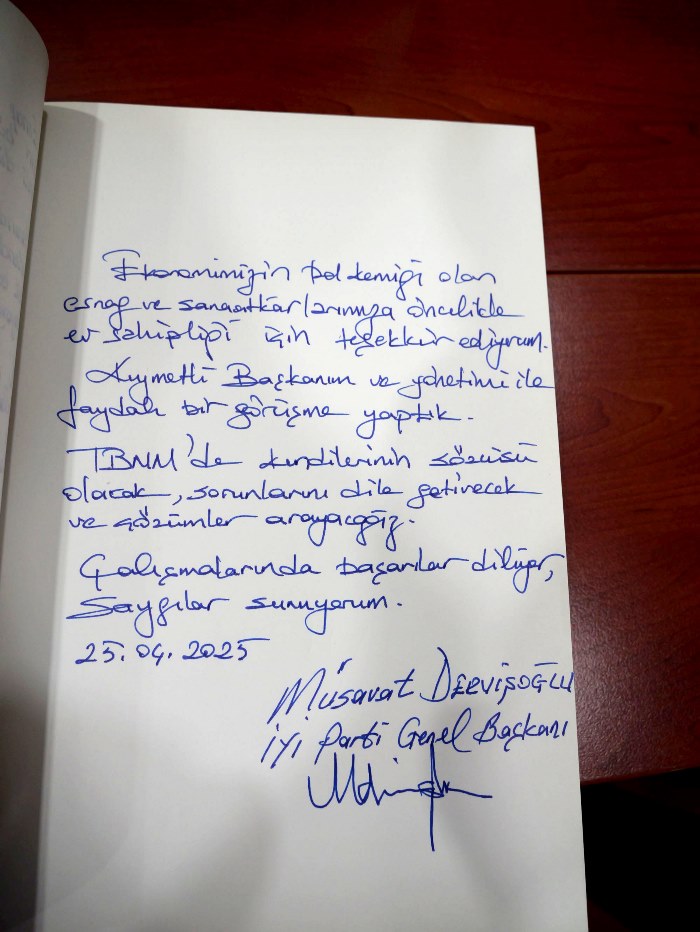 Ekonomimizin bel kemiği olan
esnaf ve sanaatkarlarımıza öncelikle
ev sahipliği için teşekkür ediyorum.
Kıymetli Başkanım ve yönetimi ile
faydalı bir görüşme yaptık.
TBMM'de kendilerinin sözcüsü
olacak, sorunlarını dile getirecek
ve çözümler arayacağız.
Çalışmalarında başarılar diliyor,
Saygılar sunuyorum.
25.04.2025
Müsavat DERVİŞOĞLU
İYİ Parti Genel Başkanı